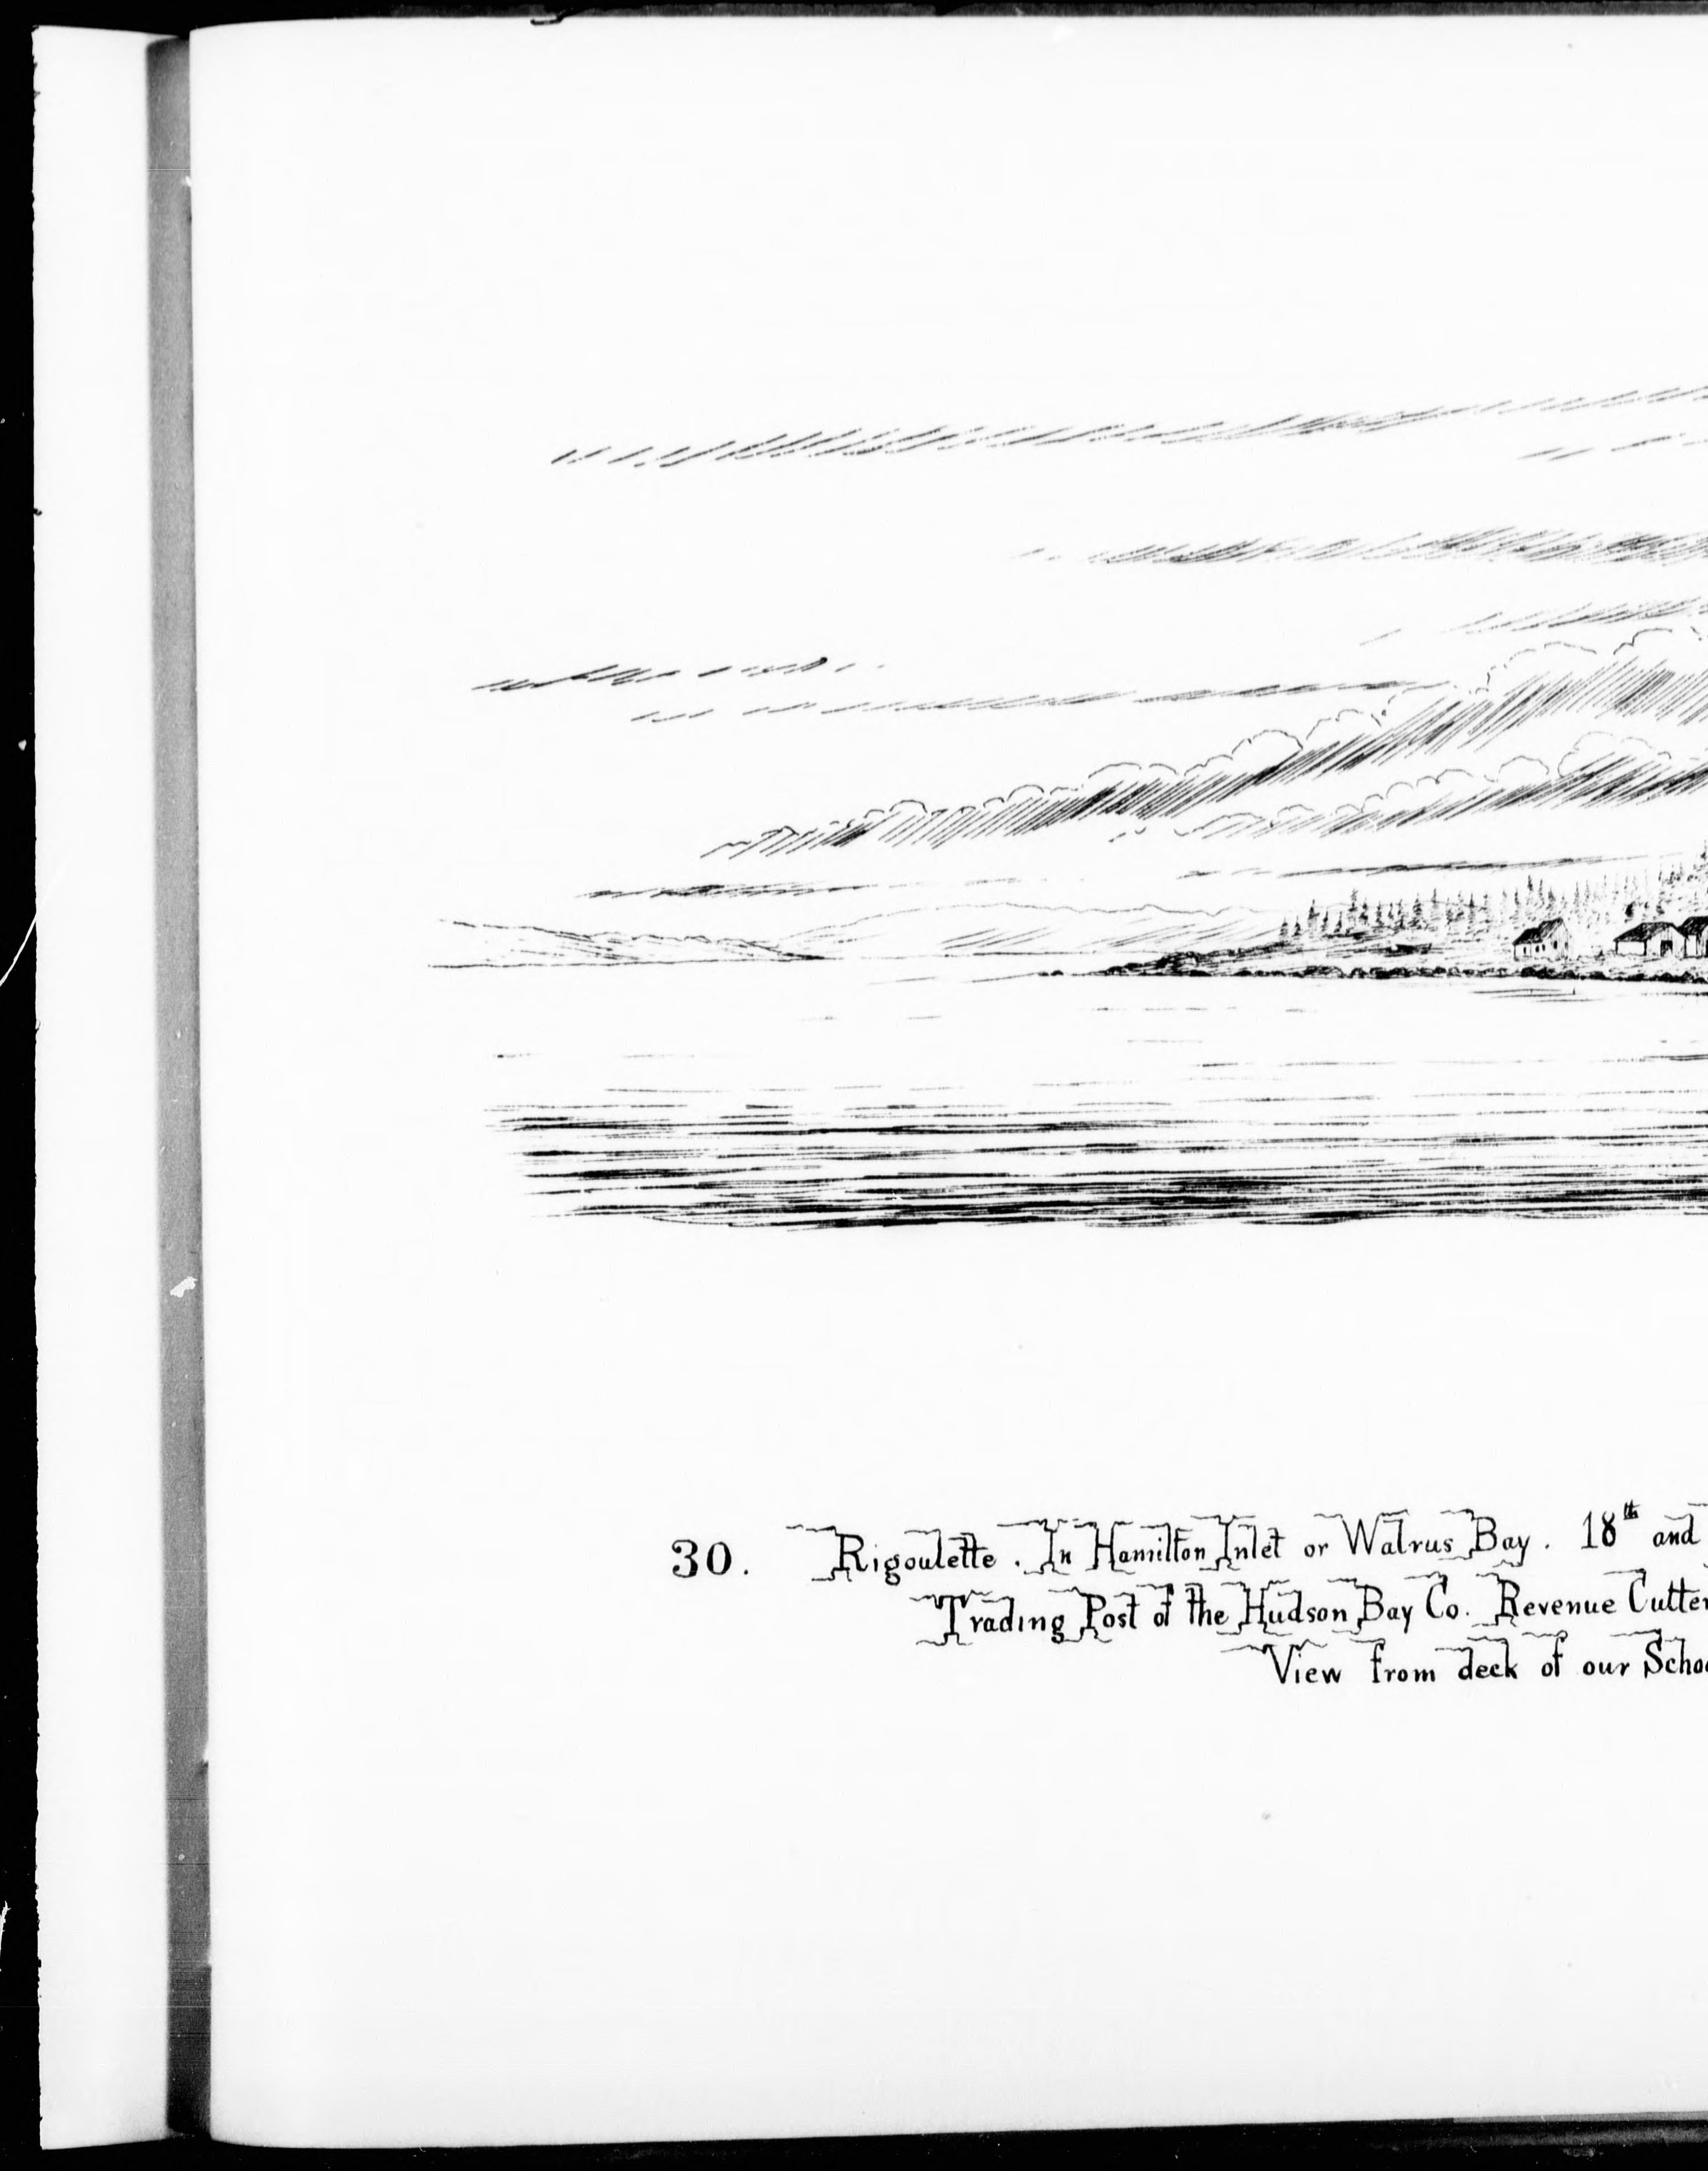 30. Rigoulette. In Hamilton Inlet or Walrus Bay. 18th and
Trading Post of the Hudson Bay Co. Revenue Cutter
View from deck of our